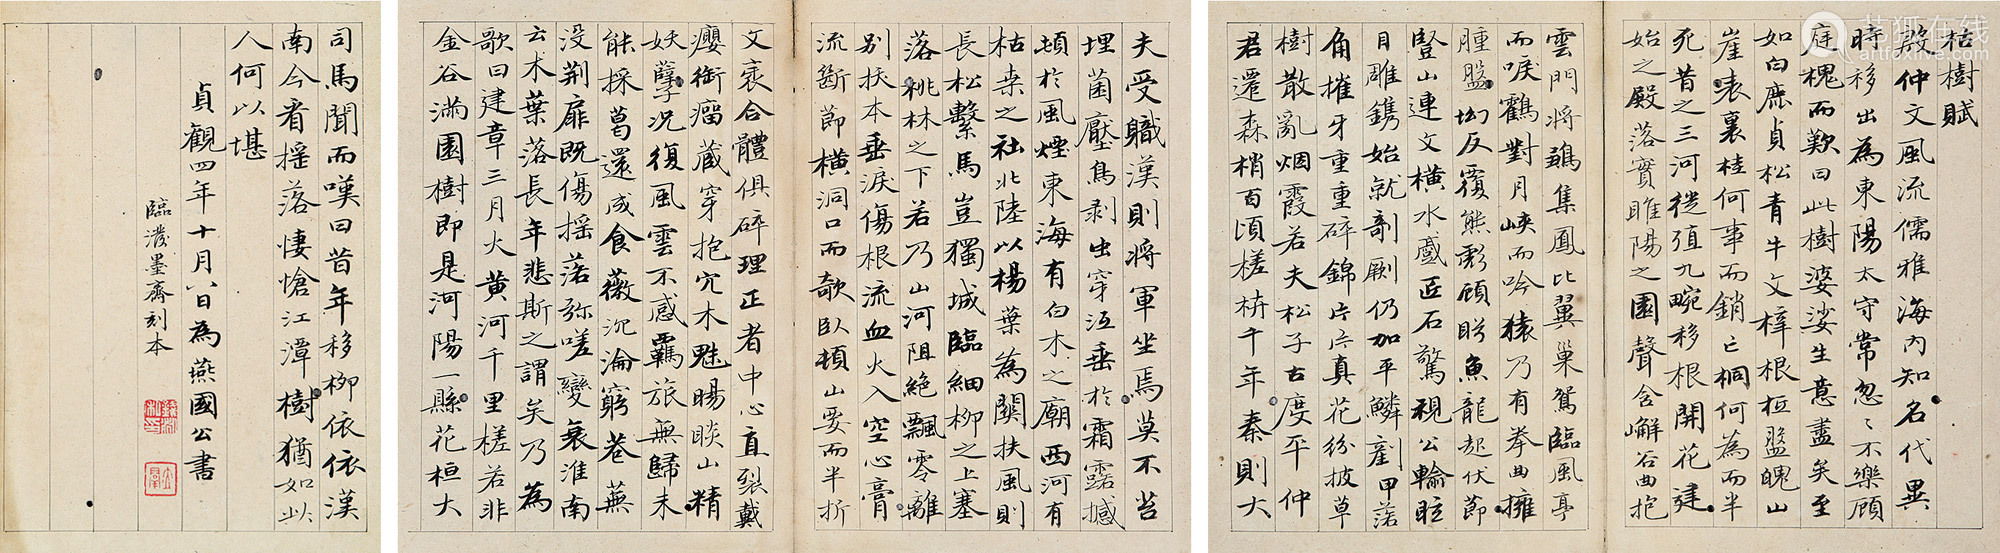 枯樹賦
殷仲文風流儒雅海內知名代異
時移出為東陽太守常忽〻不樂顧
庭槐而歎曰此樹婆娑生意盡矣至
如白鹿貞松青牛文梓根柢盤魄山
崖表裏桂何事而銷亡桐何為而半
死昔之三河徙殖九畹移根開花建
始之殿落實睢陽之園聲含嶰谷曲抱
雲門將鶵集鳳比翼巢鴛臨風亭
而唳鶴對月峽而吟猿乃有拳曲擁
腫盤坳反覆熊彪顧盼魚龍起伏節
豎山連文橫水蹙匠石驚視公輸眩
目雕鐫始就剞劂仍加平鱗剷甲落
角摧牙重重碎錦片片真花紛披草
樹散亂烟霞若夫松子古度平仲
君遷森梢百頃槎枿千年秦則大
夫受職漢則將軍坐焉莫不苔
埋菌壓鳥剥虫穿沍垂於霜露撼
頓於風煙東海有白木之廟西河有
枯桒之社北陸以楊葉為關扶風則
長松繫馬豈獨城臨細柳之上塞
落桃林之下若乃山河阻絕飄零離
別拔本垂淚傷根流血火入空心膏
流斷節橫洞口而欹臥頓山要而半折
文袤合體俱碎理正者中心直裂戴
癭銜瘤藏穿抱穴木魅睗睒山精
妖孽況復風雲不感羈旅無歸未
能採葛還成食薇沉淪窮巷蕪
没荊扉既傷摇落弥嗟變衰淮南
云木葉落長年悲斯之謂矣乃為
歌曰建章三月火黃河千里槎若非
金谷滿園樹即是河陽一縣花桓大
司馬聞而嘆曰昔年移柳依依漢
南今看摇落悽愴江潭樹猶如此
人何以堪
貞觀四年十月八日為燕國公書
臨潑墨齋刻本
艺狐在线
artfoxlive.com